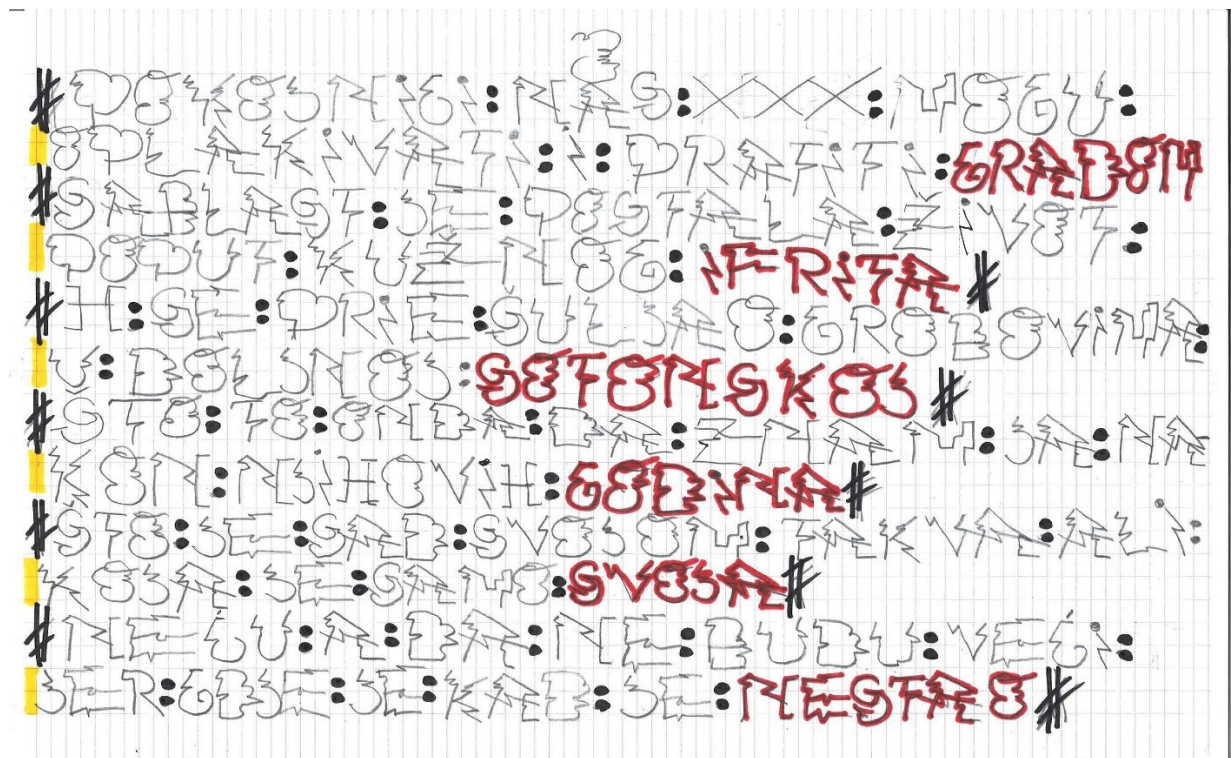 # POKOJNIGI: NA S: XXX: I MOGU:
OPLAKIVATI: I: PRATITI: GRADOM
# SABLAST: JE: POSTALA: ZIVOT:
POPUT: KUZNOG: IFRITA #
# H: SE: PRIE: SULJAO: GROBOVIMA:
U: DOLJNOJ: SOTONSKOJ #
# STO: TO: ONDA: DA: ZNAM: JA: NA
KON: NJIHOVIH: GODINA #
# STO: JE: SAD: SVOJOM: TAKVA: ALI:
KOJA: JE: SAMO: SVOJA #
# NEĆU: DA: NE: BUDU: VEĆ I:
JER: GDJE: JE: KAD: JE: NESTAO #